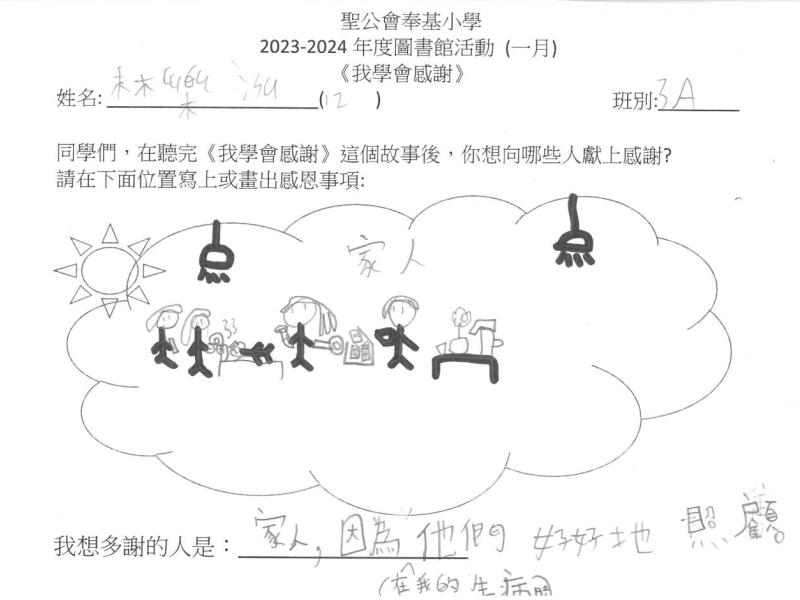 聖公會奉基小學
2023-2024 年度圖書館活動 (一月)
《我學會感謝》
姓名: 林 (12) 班別: 3A
同學們，在聽完《我學會感謝》這個故事後，你想向哪些人獻上感謝?
請在下面位置寫上或畫出感恩事項:
家人
我想多謝的人是：家人, 因為 他們 好好地 照顧
(在我的生病